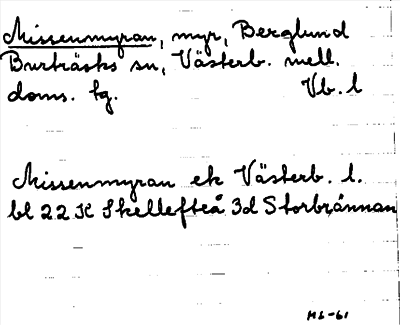 Missenmyran, myr, Berglund
Burträsks sn, Västerb. mell.
doms. tg. Vb. l
Missenmyran ek Västerb. l.
bl 22 K Skellefteå 3d Storbrännan
HS-61